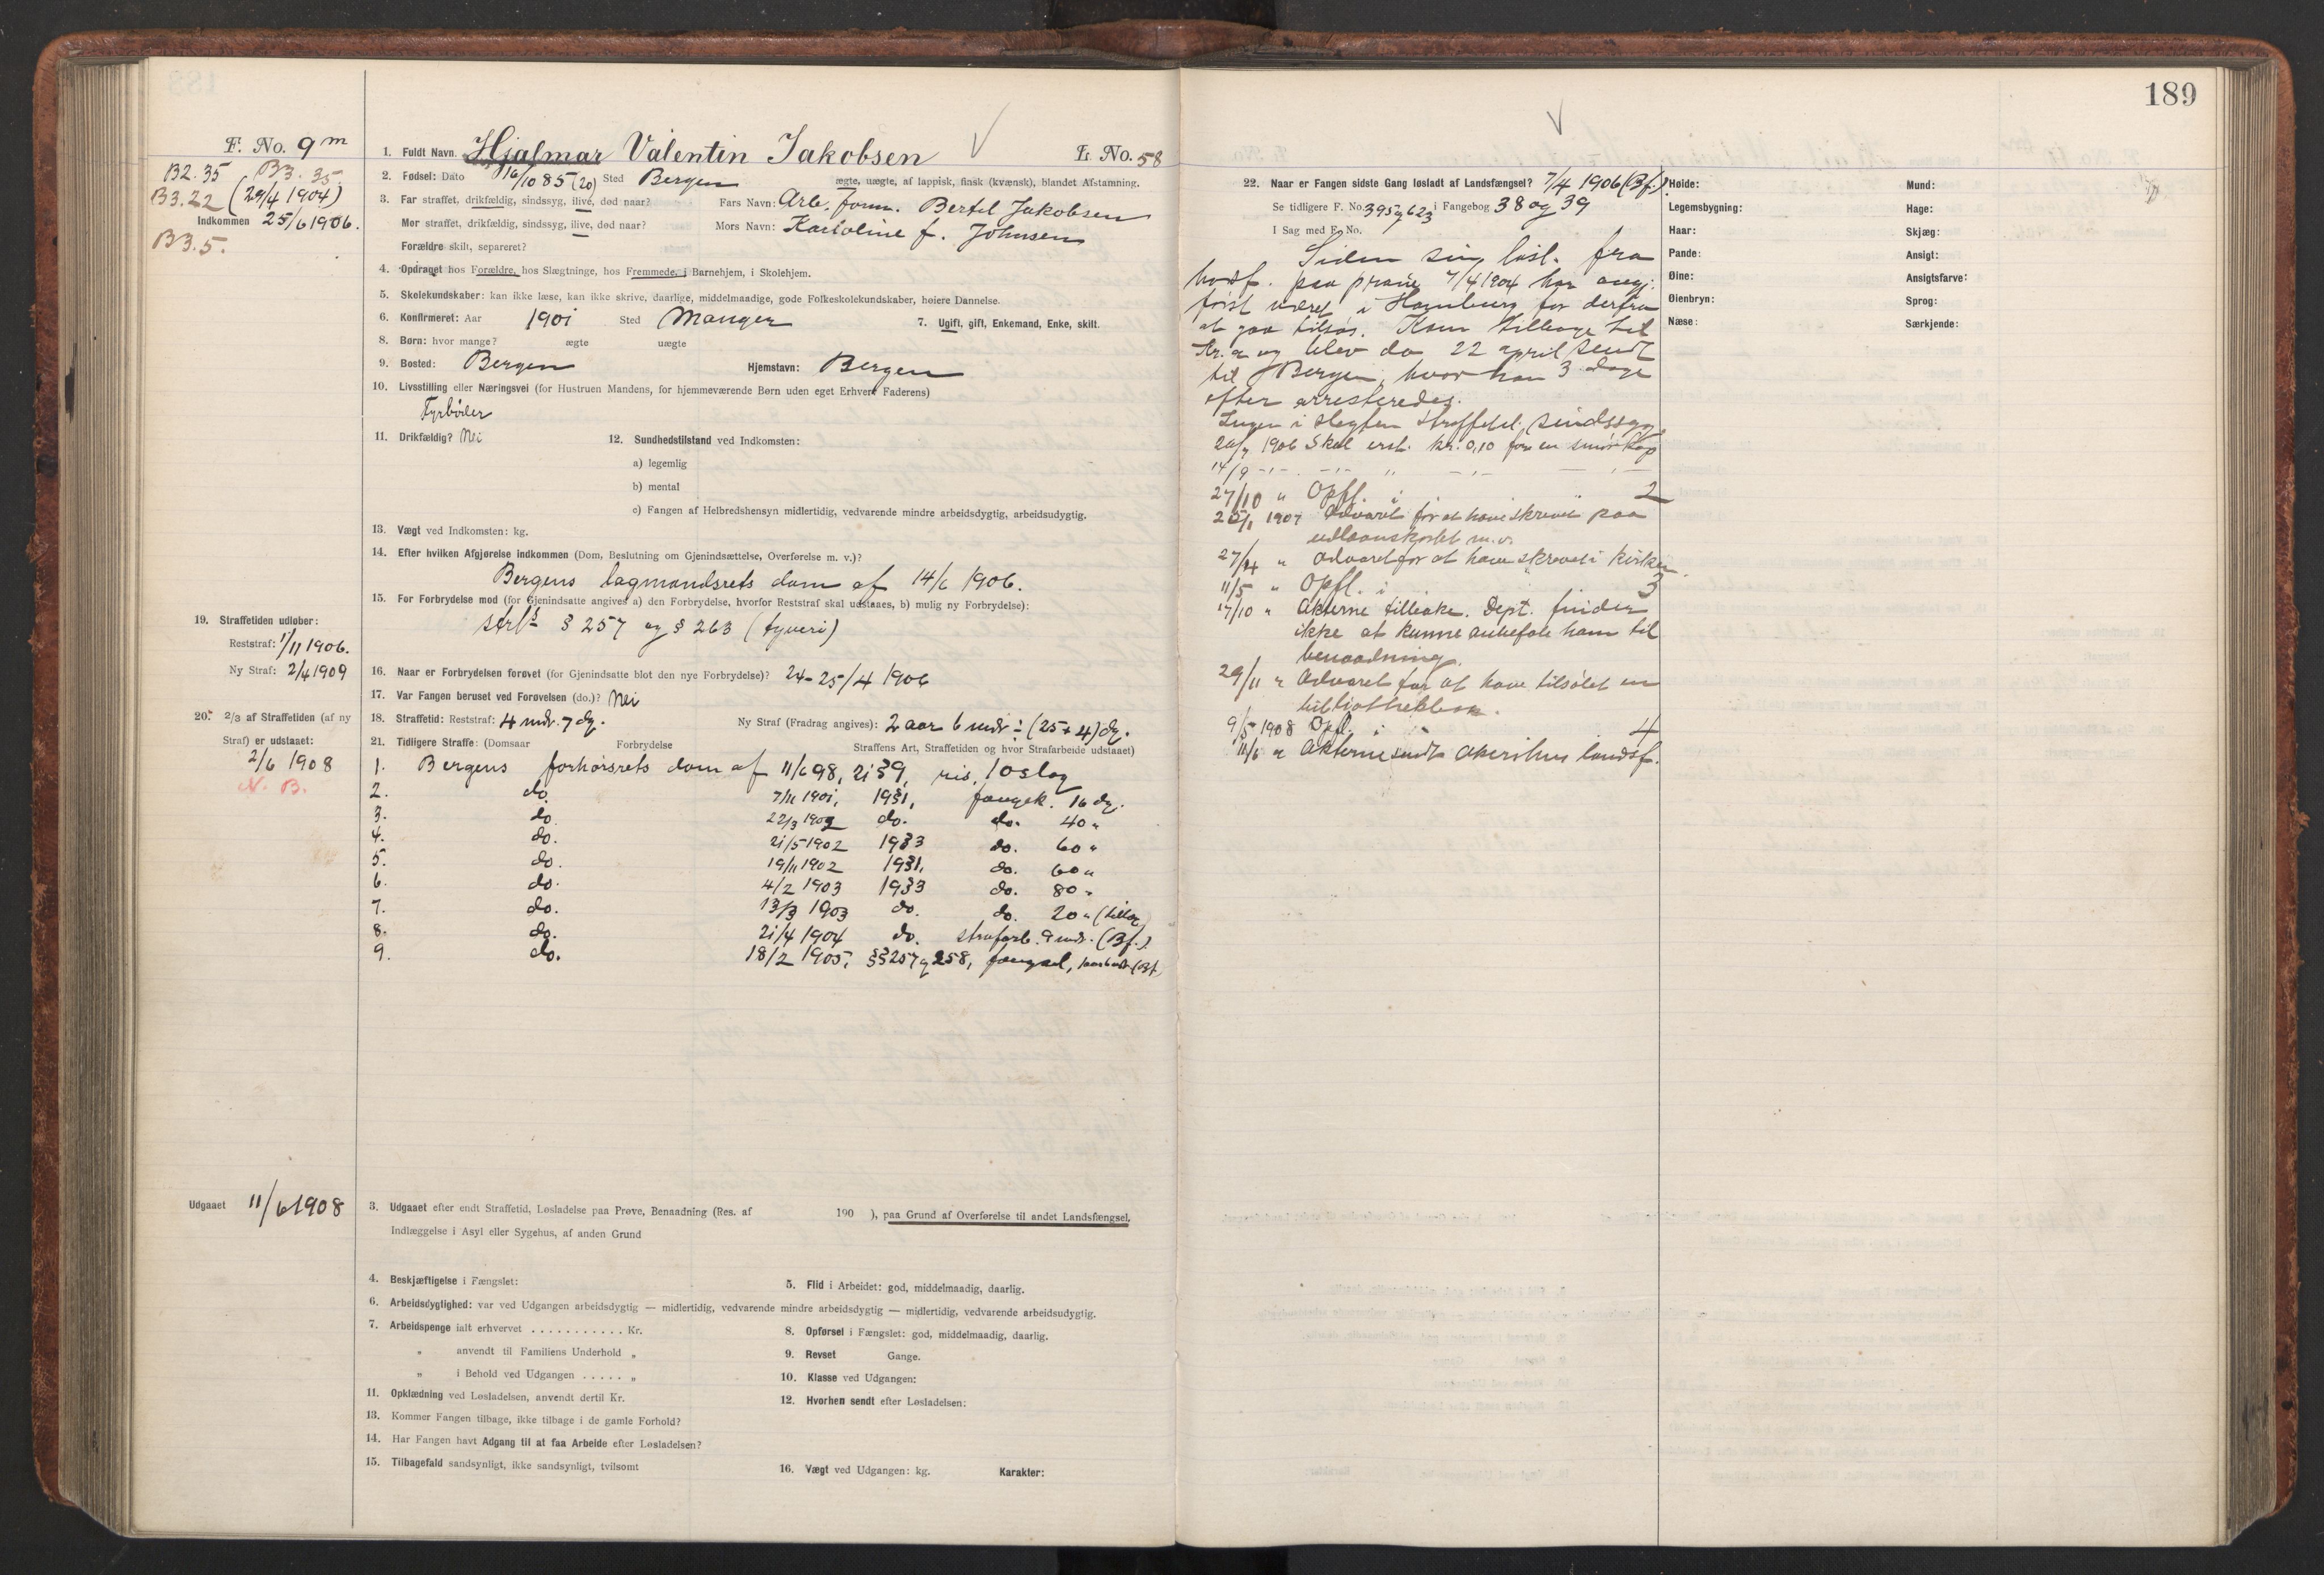 189
F. No. 9 m
B2. 35 B3. 35.
B3. 22 (29/4 1904)
Indkommen 25/6 1906.
B3. 5.
1. Fuldt Navn. Hjalmar Valentin Jakobsen L. No. 58
2. Fødsel: Dato 16/10 85 (20) Sted Bergen ægte, uægte, af lappisk, finsk (kvænsk), blandet Afstamning.
3. Far straffet, drikfældig, sindssyg, ilive, død naar? Fars Navn: Arb. form. Bertel Jakobsen
Mor straffet, drikfældig, sindssyg, ilive, død naar? Mors Navn: Karoline f. Johnsen
Forældre skilt, separeret?
4. Opdraget hos Forældre, hos Slægtninge, hos Fremmede, i Barnehjem, i Skolehjem.
5. Skolekundskaber: kan ikke læse, kan ikke skrive, daarlige, middelmaadige, gode Folkeskolekundskaber, høiere Dannelse.
6. Konfirmeret: Aar 1901 Sted Manger 7. Ugift, gift, Enkemand, Enke, skilt.
8. Børn: hvor mange? ægte uægte
9. Bosted: Bergen Hjemstavn: Bergen
10. Livsstilling eller Næringsvei (for Hustruen Mandens, for hjemmeværende Børn uden eget Erhverv Faderens)
Fyrbøder
11. Drikfældig? Nei 12. Sundhedstilstand ved Indkomsten:
a) legemlig
b) mental
c) Fangen af Helbredshensyn midlertidig, vedvarende mindre arbeidsdygtig, arbeidsudygtig.
13. Vægt ved Indkomsten: kg.
14. Efter hvilken Afgjørelse indkommen (Dom, Beslutning om Gjenindsættelse, Overførelse m. v.)?
Bergens lagmandsrets dom af 14/6 1906.
15. For Forbrydelse mod (for Gjenindsatte angives a) den Forbrydelse, hvorfor Reststraf skal udstaaes, b) mulig ny Forbrydelse):
strfl § 257 og § 263 (tyveri)
19. Straffetiden udløber:
Reststraf: 1/11 1906.
Ny Straf: 2/4 1909
16. Naar er Forbrydelsen forøvet (for Gjenindsatte blot den nye Forbrydelse)? 24-25/4 1906
17. Var Fangen beruset ved Forøvelsen (do.)? Nei
20. 2/3 af Straffetiden (af ny
Straf) er udstaaet:
2/6 1908
N. B.
18. Straffetid: Reststraf: 4 mdr. 7 dg. Ny Straf (Fradrag angives): 2 aar 6 mdr ÷ (25 + 4) dg.
21. Tidligere Straffe: (Domsaar Forbrydelse Straffens Art, Straffetiden og hvor Strafarbeide udstaaet)
1. Bergens forhørsrets dom af 11/6 98, 21 § 9, ris, 10 slag
2. do. 7/11 1901, 19 § 1, fængsl. 16 dg.
3. do. 22/3 1902 do. do. 40 "
4. do. 21/5 1902 19 § 3 do. 60 "
5. do. 19/11 1902 19 § 1, do. 60 "
6. do. 4/2 1903 19 § 3 do. 80 "
7. do. 13/3 1903 do. do. 20 " (tillæg)
8. do. 21/4 1904 do. strafarb. 9 mdr. (Bf.)
9. do. 18/2 1905, §§ 257 og 258, fængsel,
Udgaaet 11/6 1908
3. Udgaaet efter endt Straffetid, Løsladelse paa Prøve, Benaadning (Res. af 190 ), paa Grund af Overførelse til andet Landsfængsel,
Indlæggelse i Asyl eller Sygehus, af anden Grund
4. Beskjæftigelse i Fængslet: 5. Flid i Arbeidet: god, middelmaadig, daarlig.
6. Arbeidsdygtighed: var ved Udgangen arbeidsdygtig — midlertidig, vedvarende mindre arbeidsdygtig — midlertidig, vedvarende arbeidsudygtig.
7. Arbeidspenge ialt erhvervet . . . . . . . . . . . Kr. 8. Opførsel i Fængslet: god, middelmaadig, daarlig.
„ anvendt til Familiens Underhold „ 9. Revset Gange.
„ i Behold ved Udgangen . . . . . „ 10. Klasse ved Udgangen:
11. Opklædning ved Løsladelsen, anvendt dertil Kr. 12. Hvorhen sendt efter Løsladelsen:
13. Kommer Fangen tilbage, ikke tilbage i de gamle Forhold?
14. Har Fangen havt Adgang til at faa Arbeide efter Løsladelsen?
15. Tilbagefald sandsynligt, ikke sandsynligt, tvilsomt 16. Vægt ved Udgangen: kg. Karakter:
22. Naar er Fangen sidste Gang løsladt af Landsfængsel? 7/4 1906 (Bf.).
Se tidligere F. No. 395 og 623 i Fangebog 38 og 39
I Sag med F. No.
Siden sin løsl. fra
paa prøve 7/4 1904 har angj.
først været i Hamburg for derfra
at gaa tilsøs. Kom tilbage til
Kr.a og blev da 22 april sendt
til Bergen, hvor han 3 dage
efter arresteredes.
Ingen i slægten straffet el. sindssyg.
20/7 1906 Skal erst. kr. 0,10 for en
14/9 -,,- -,,- " -,,-
27/10 " Opfl. i 2
25/1 1907 Advaret for at have skrevet paa
udlaanskortet m.v.
27/4 " Advaret for at have skrevet i kirken.
11/5 " Opfl. i 3
17/10 " Akterne tilbake. Dept. finder
ikke at kunne anbefale ham til
benaadning.
29/11 " Advaret for at have tilsølet en
bibliothekbok.
9/5 1908 Opfl. i 4
11/6 " Akterne sendt Akershus landsf.
Høide: Mund:
Legemsbygning: Hage:
Haar: Skjæg:
Pande: Ansigt:
Øine: Ansigtsfarve:
Øienbryn: Sprog:
Næse: Særkjende: